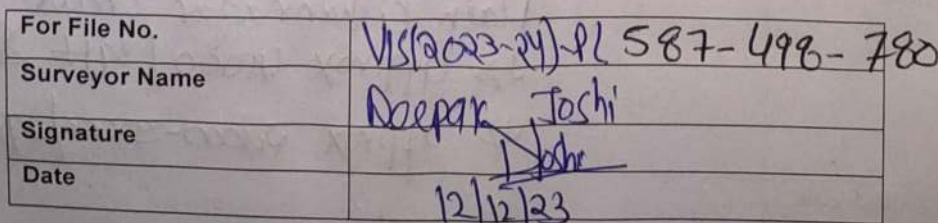 For File No. VIS(2023-24)-PL 587-498-780
Surveyor Name Deepak Joshi
Signature DJoshi
Date 12/12/23